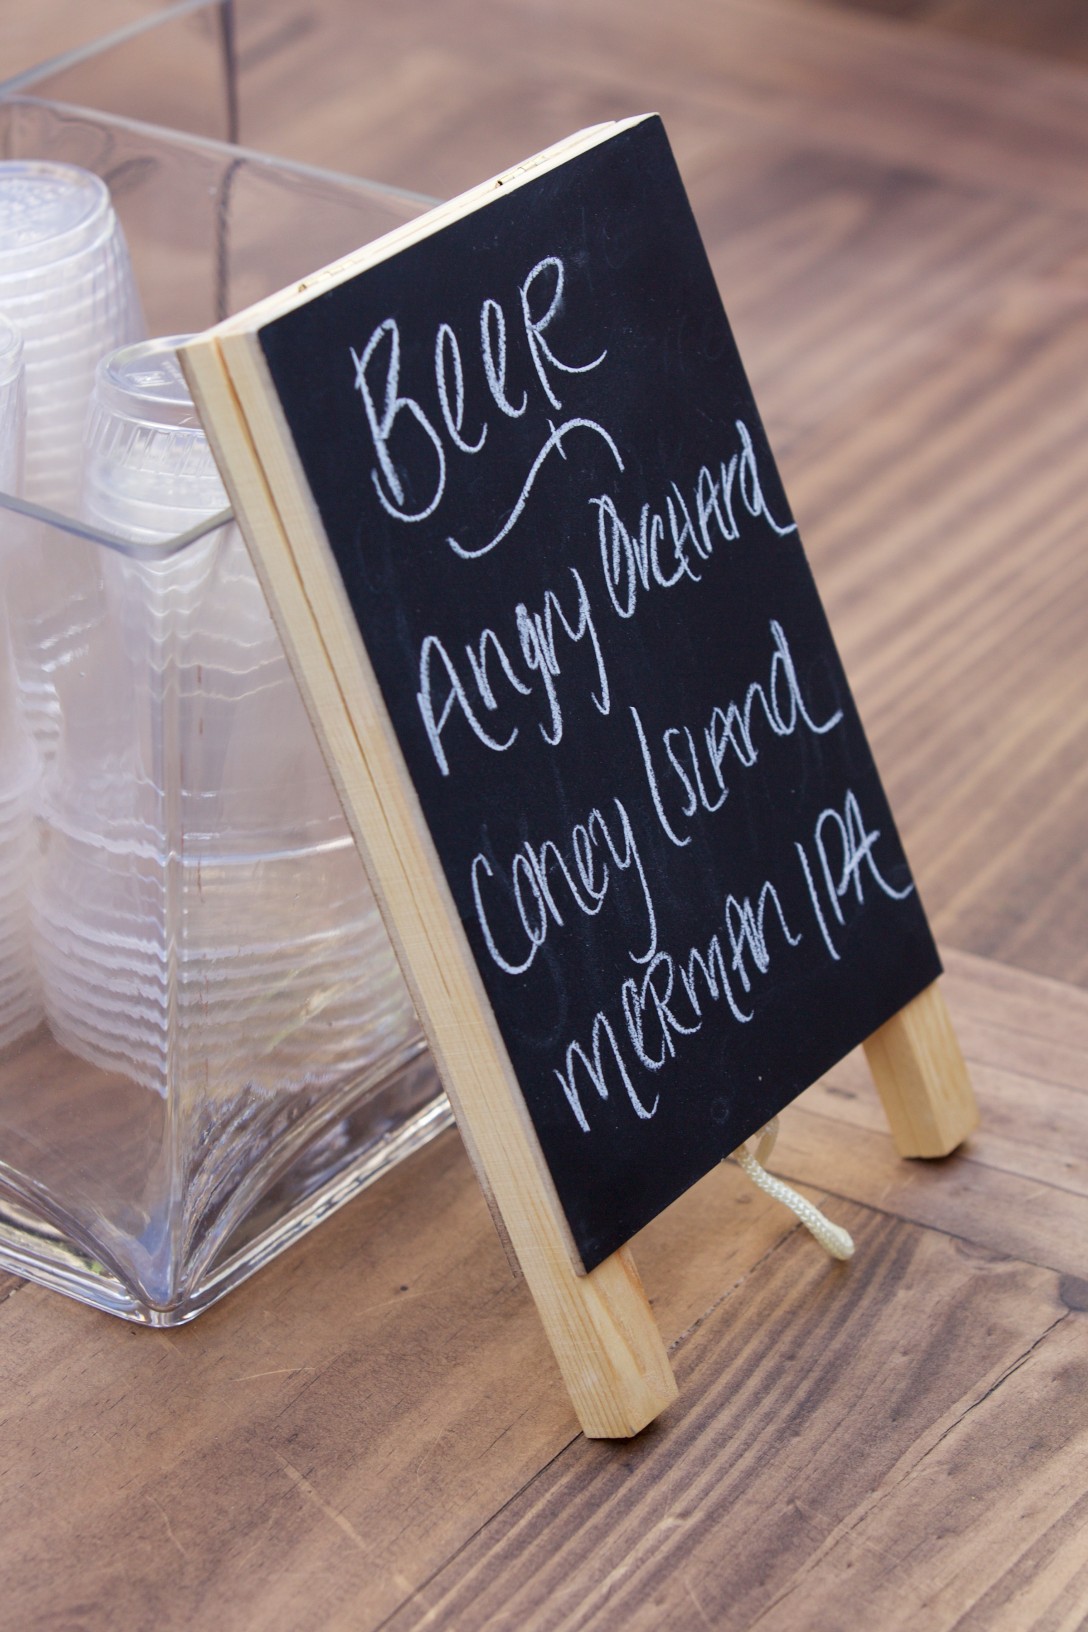 BeeR
Angry Orchard
Coney Island
Merman IPA